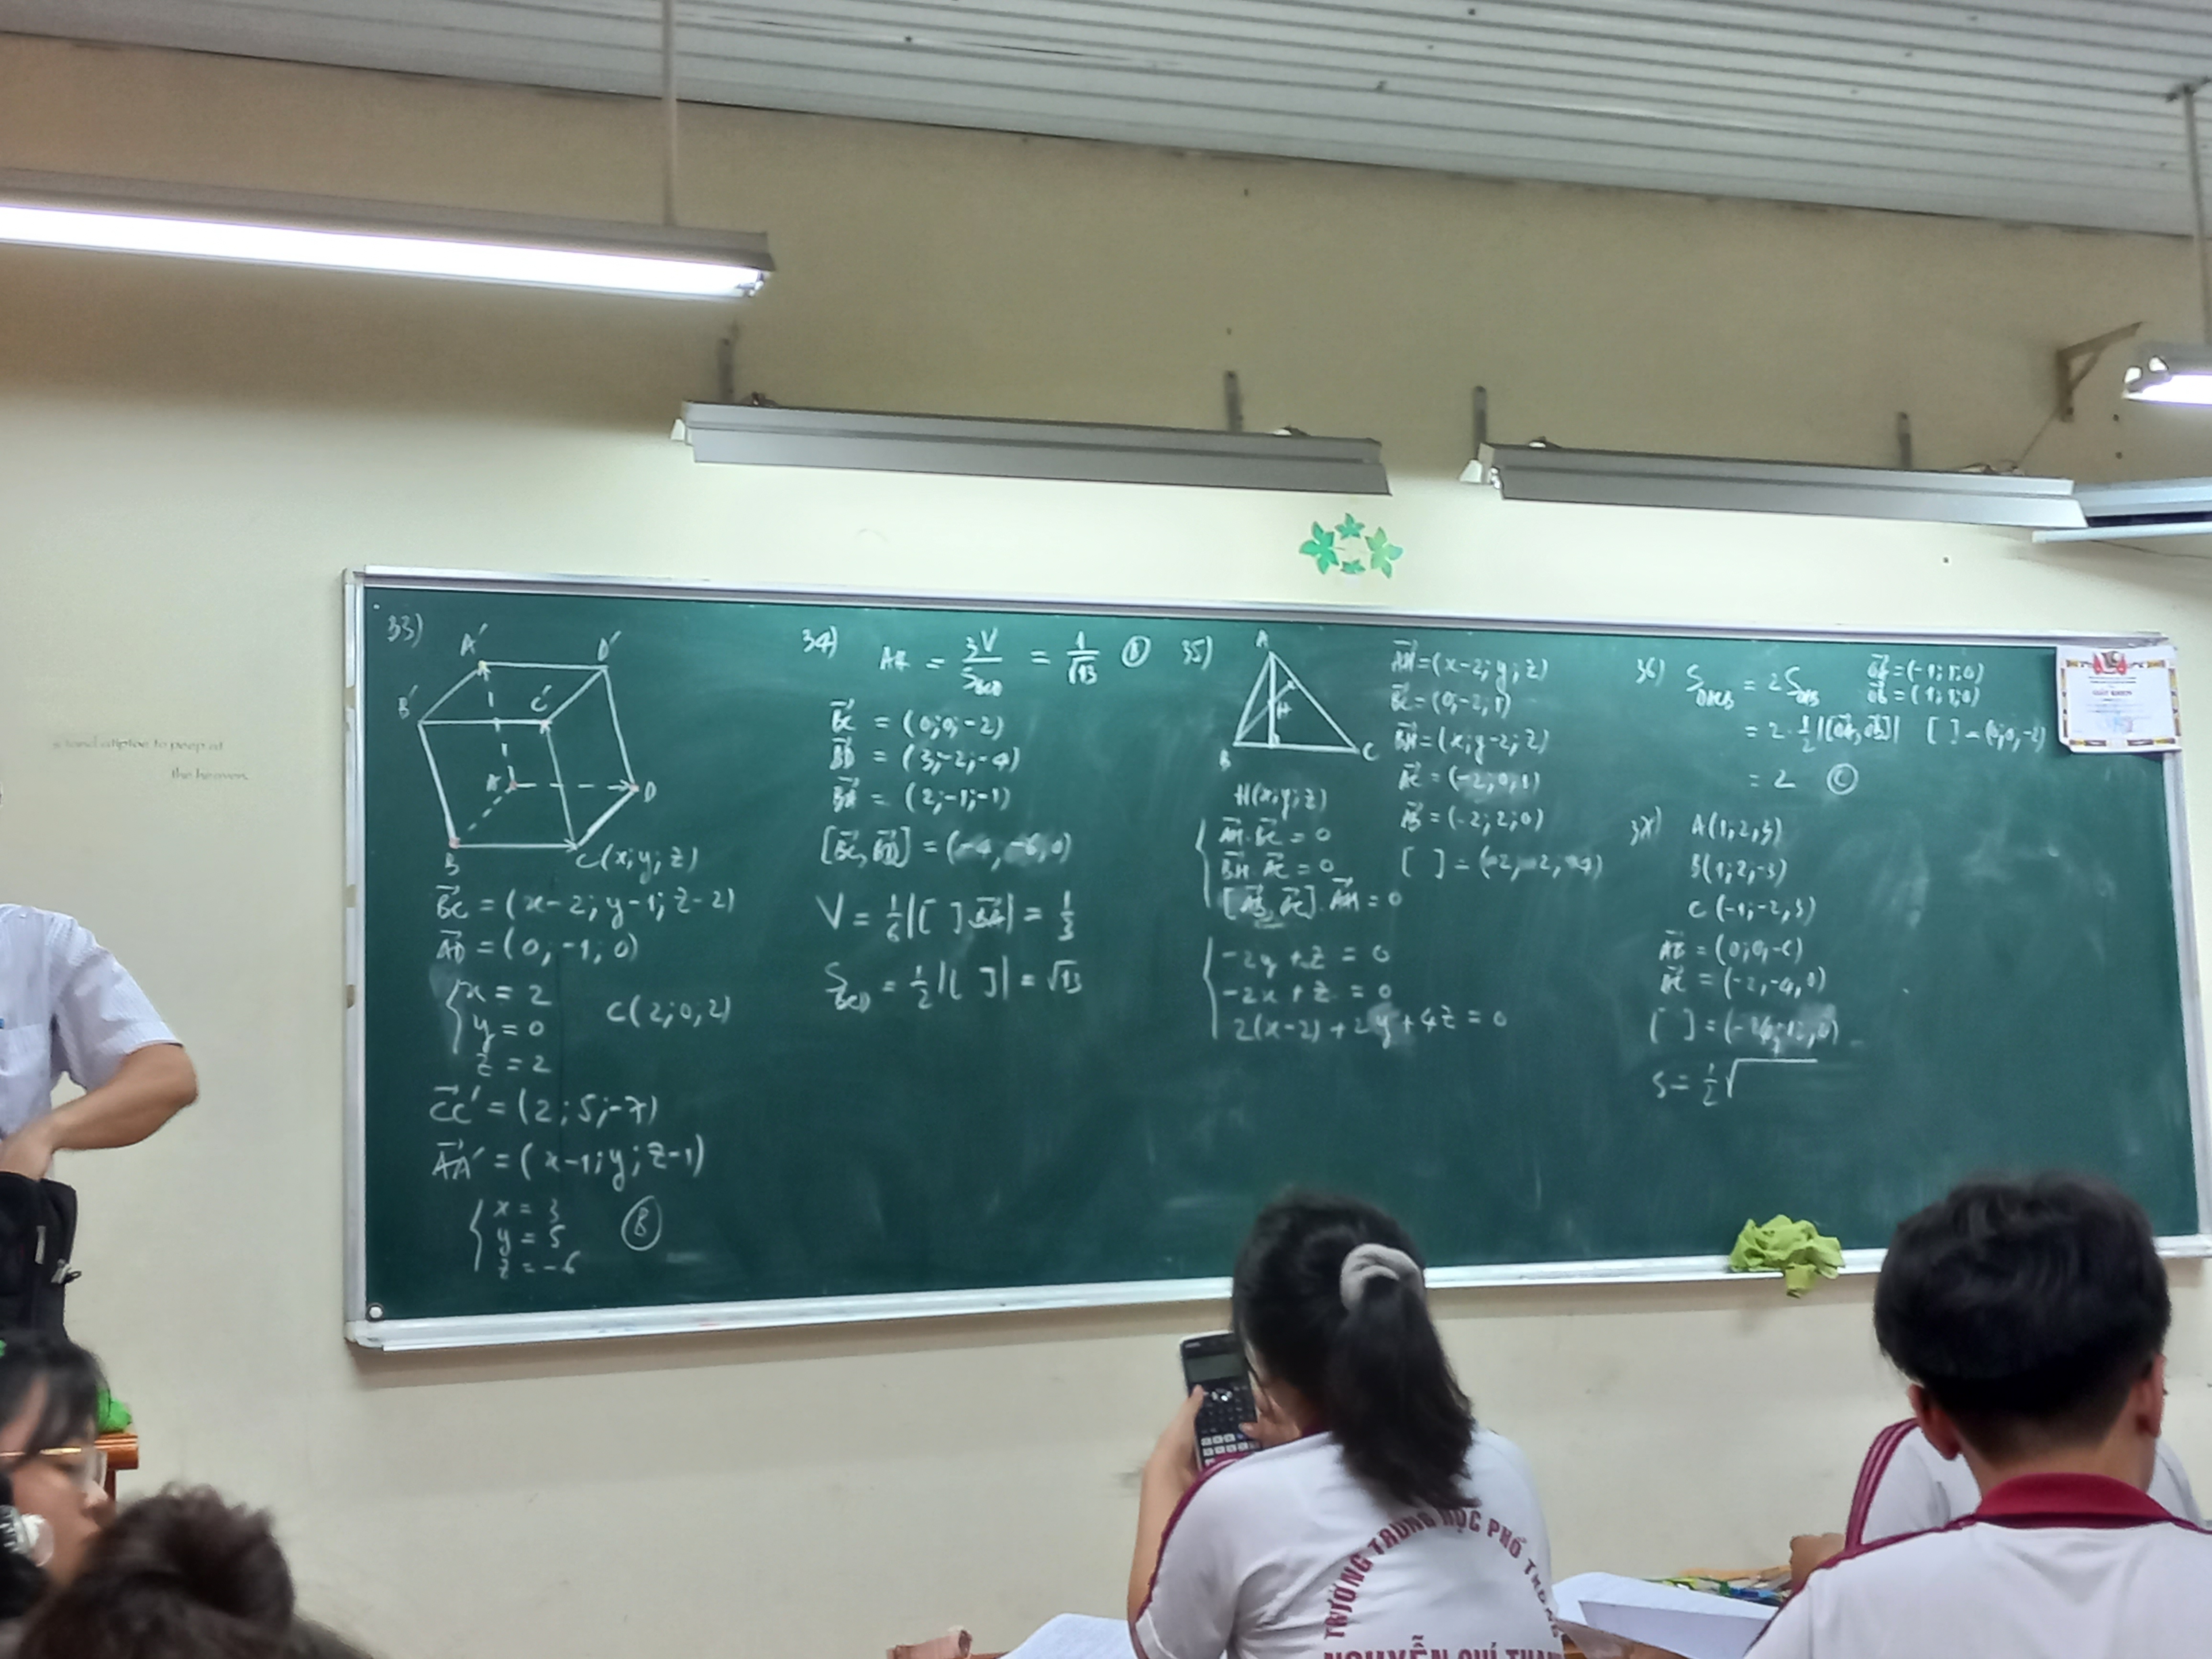 stand atiptoe to peep at
the heaven.
33)
A' D'
B' C'
A D
B C(x; y; z)
BC = (x-2; y-1; z-2)
AD = (0; -1; 0)
x = 2
y = 0
z = 2
C(2; 0; 2)
CC' = (2; 5; -7)
AA' = (x-1; y; z-1)
x = 3
y = 5
z = -6
B
34) AH = 3V / S BCD = 1/√13 B
BC = (0; 0; -2)
BD = (3; -2; -4)
BA = (2; -1; -1)
[BC, BD] = (-4, -6, 0)
V = 1/6 |[ ] BA| = 1/3
S BCD = 1/2 |[ ]| = √13
35)
A
H
B C
H(x; y; z)
AH . BC = 0
BH . AC = 0
[AB, AC] . AH = 0
-2y + z = 0
-2x + z = 0
2(x-2) + 2y + 4z = 0
AH = (x-2; y; z)
BC = (0; -2; 1)
BH = (x; y-2; z)
AC = (-2; 0; 1)
AB = (-2; 2; 0)
36) S OACB = 2 S OAB
OA = (-1; 1; 0)
OB = (1; 1; 0)
= 2 . 1/2 |[OA, OB]| [ ] = (0; 0; -2)
= 2 C
A(1; 2; 3)
B(1; 2; -3)
C(-1; -2; 3)
AB = (0; 0; -6)
AC = (-2; -4; 0)
S = 1/2 √
GIẤY KHEN
TRƯỜNG TRUNG HỌC PHỔ THÔNG
NGUYỄN CHÍ THANH